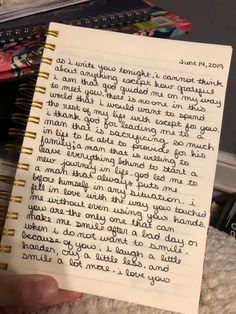 June 14, 2019
as i write you tonight, i cannot think
about anything except how grateful
i am that god guided me on my way
to meet you. there is no one in this
world that i would want to spend
the rest of my life with except for you.
i thank god for leading me to a
man that is sacrificing so much
in life to be able to provide for his
family; a man that is willing to
leave everything behind to start a
new journey in life. god led me to
a man that always puts me
before himself in any situation. i
fell in love with the way you touched
me without even using your hands.
you are the only one that can
make me smile after a bad day or
when i do not want to smile.
because of you, i laugh a little
harder, cry a little less, and
smile a lot more. i love you